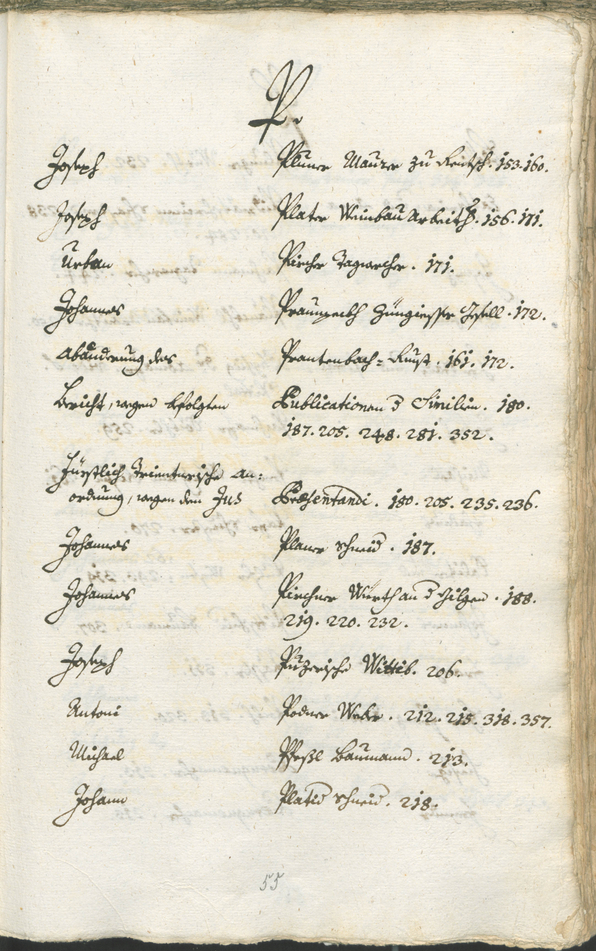 P.
Joseph Pluner Maurer zu Rentsch. 153. 160.
Joseph Plater Weinbau Arbeith. 156. 171.
Urban Pircher Tagwercher. 171.
Johannes Gesell. 172.
Abänderung des Prantenbach = Kunst. 161. 172.
Bericht, wegen Erfolgten Publicationen d Civilien. 180.
187. 205. 248. 281. 352.
Fürstlich Trienterische An:
ordnung, wegen dem Jus Præsentandi. 180. 205. 235. 236.
Johannes Planer Schneid. 187.
Johannes Pirchner Würth an d Hilgen. 188.
219. 220. 232.
Joseph Puzerische Wittib. 206.
Antoni Podner Weber. 212. 215. 318. 357.
Michael Baumann. 213.
Johann Platid Schneid. 218.
55